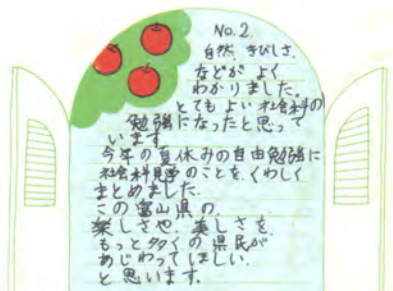 No.2.
自然、きびしさ、
などが よく
わかりました。
とてもよい社会科の
勉強になったと思って
います。
今年の夏休みの自由勉強に
社会科見学のことを、くわしく
まとめました。
この富山県の、
楽しさや、美しさを、
もっと多くの県民が
あじわってほしい、
と思います。